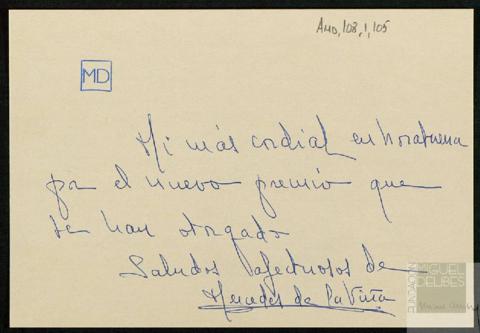 AMD, 108, 1, 105
MD
Mi más cordial enhorabuena
por el nuevo premio que
le han otorgado
Saludos afectuosos de
Mercedes de la Viña
FUNDACIÓN
MIGUEL
DELIBES